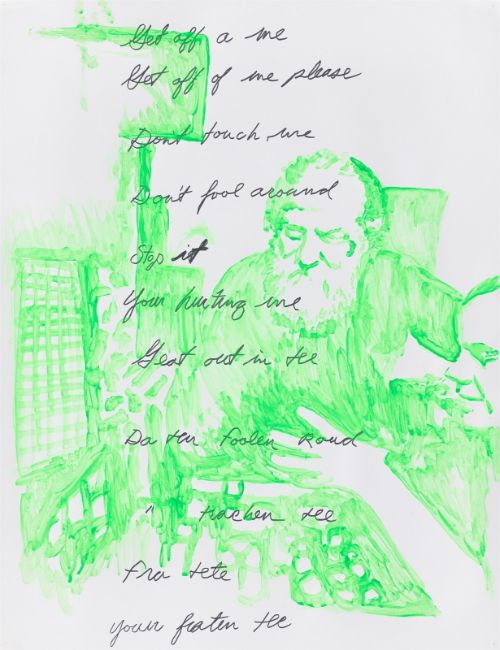 Get off a me
Get off of me please
Don't touch me
Don't fool around
Stop it
Your hurting me
Geat out in tee
Da ten foolen Roud
" tiachen tee
Fra tete
your fraten tee